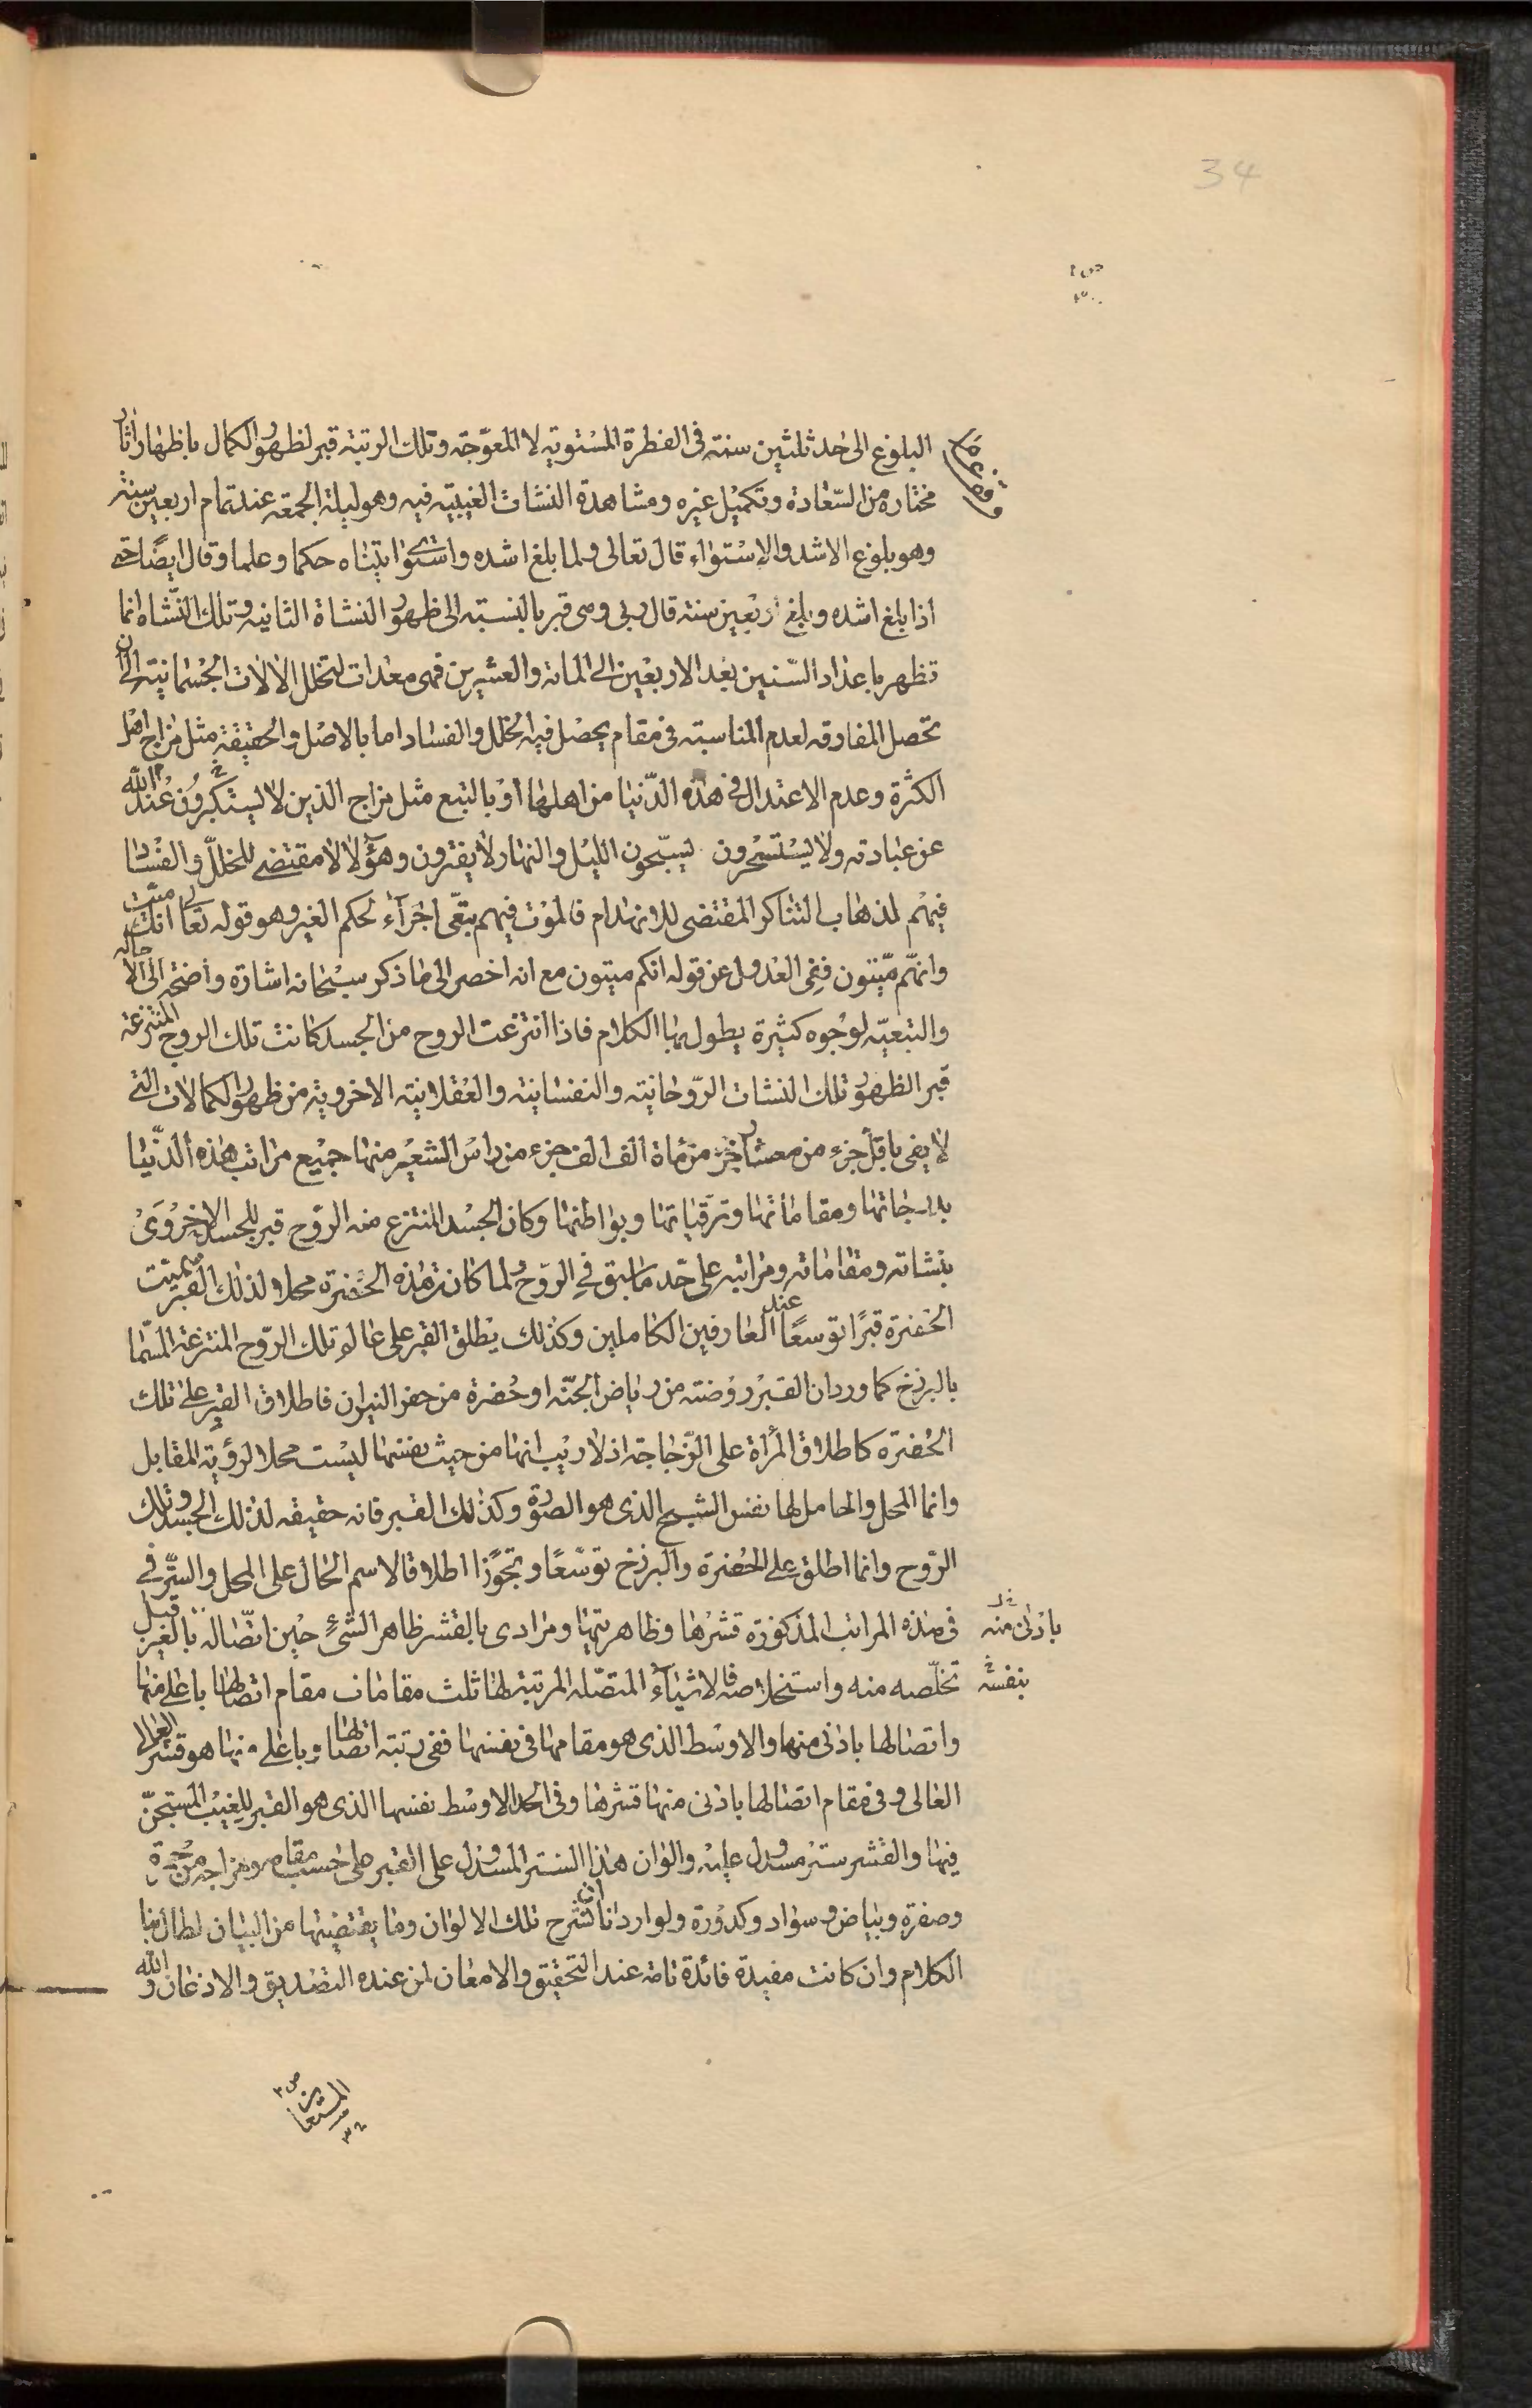 34
البلوغ الى حد ثلثين سنة فى الفطرة المستوية لا المعوّجة وتلك الرتبة قبر لظهور الكمال باظهار اثار
مختاره من السّعادة وتكميل غيره ومشاهدة النشات الغيبيّة فيه وهو ليلة الجمعة عند تمام اربعين سنة
وهو بلوغ الاشد والاستواء قال تعالى ولما بلغ اشده واستوى اتيناه حكما وعلما وقال ايضًا حتى
اذا بلغ اشده وبلغ اربعين سنة قال ربى وهى قبر بالنسبة الى ظهور النشاة الثانية وتلك النّشاة انما
تظهر باعداد السّنين بعد الاربعين الى المائة والعشرين فهى معدات لتخلل الالات الجسمانية الى ان
تحصل المفارقة لعدم المناسبة فى مقام يحصل فيه الخلل والفساد اما بالاصل والحقيقة مثل مزاج اهل
الكثرة وعدم الاعتدال فى هذه الدّنيا من اهلها او بالتبع مثل مزاج الذين لا يستكبرون عند الله
عن عبادته ولا يستحسرون يسبّحون الليل والنهار لا يفترون وهؤلاء لا مقتضى للخلل والفساد
فيهم لذهاب التناكر المقتضى للانهدام فالموت فيهم تبعّى اجراء لحكم الغير وهو قوله تعالى انك ميّت
وانهّم ميّتون ففى العدول عن قوله انكم ميتون مع انه اخصر الى ما ذكر سبحانه اشارة واضحة الى الاصالة
والتبعيّة لوجوه كثيرة يطول بها الكلام فاذا انتزعت الروح من الجسد كانت تلك الروح المنتزعة
قبر الظهور تلك النشات الرّوحانية والنفسانية والعقلانية الاخروية من ظهور الكمالات التى
لا يفى باقل جزء من معشار جزء من مأة الف الف جزء من راس الشعير منها جميع مراتب هذه الدّنيا
بدرجاتها ومقاماتها وترقياتها وبواطنها وكان الجسد المنتزع منه الروح قبر للجسد الاخروى
بنشاته ومقاماته ومراتبه على حّد ما سبق فى الروح ولما كان هذه الحفرة محلا لذلك القبر سميت
الحفرة قبرًا توسعًا عند العارفين الكاملين وكذلك يطلق القبر على عالم تلك الرّوح المنتزعة المسّما
بالبرزخ كما ورد ان القبر روضة من رياض الجنّة او حفرة من حفر النيران فاطلاق القبر على تلك
الحفرة كاطلاق المرأة على الزّجاجة اذ لا ريب انها من حيث نفسها ليست محلا لرؤية المقابل
وانما المحل والحامل لها نفس الشبح الذى هو الصورة وكذلك القبر فانه حقيقة لذلك الجسد وتلك
الرّوح وانما اطلق على الحفرة والبرزخ توسّعًا وتجوّزا اطلاقا لاسم الحال على المحل والسّر فى
فى هذه المراتب المذكورة قشرها وظاهريتها ومرادى بالقشر ظاهر الشىء حين اتّصاله بالغير قبل
بادنى منه
تخلّصه منه واستخلاصه فالاشياء المتصّلة المرتبة لها ثلث مقامات مقام اتصالها باعلى منها
بنفسه
واتصالها بادنى منها والاوسط الذى هو مقامها فى نفسها ففى رتبة اتصالها وباعلى منها هو قشر العالى
العالى وفى مقام اتصالها بادنى منها قشرها وفى الحد الاوسط نفسها الذى هو القبر للغيب المستجنّ
فيها والقشر ستر مسدول عليه والوان هذا الستر المسدول على القبر على حسب مقامه ومزاجه من حمرة
وصفرة وبياض وسواد وكدورة ولو اردنا ان نشرح تلك الالوان وما يقتضيها من البيان لطال بنا
الكلام وان كانت مفيدة فائدة تامة عند التحقيق والامعان لمن عنده التصديق والاذعان والله
المستعان